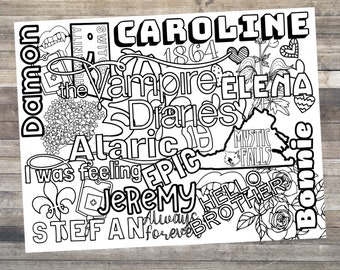 CAROLINE
Damon
1864
the Vampire
Diaries
ELENA
Alaric
MYSTIC
FALLS
I was feeling
EPIC
JEREMY
HELLO
BROTHER
Bonnie
STEFAN
Always
forever